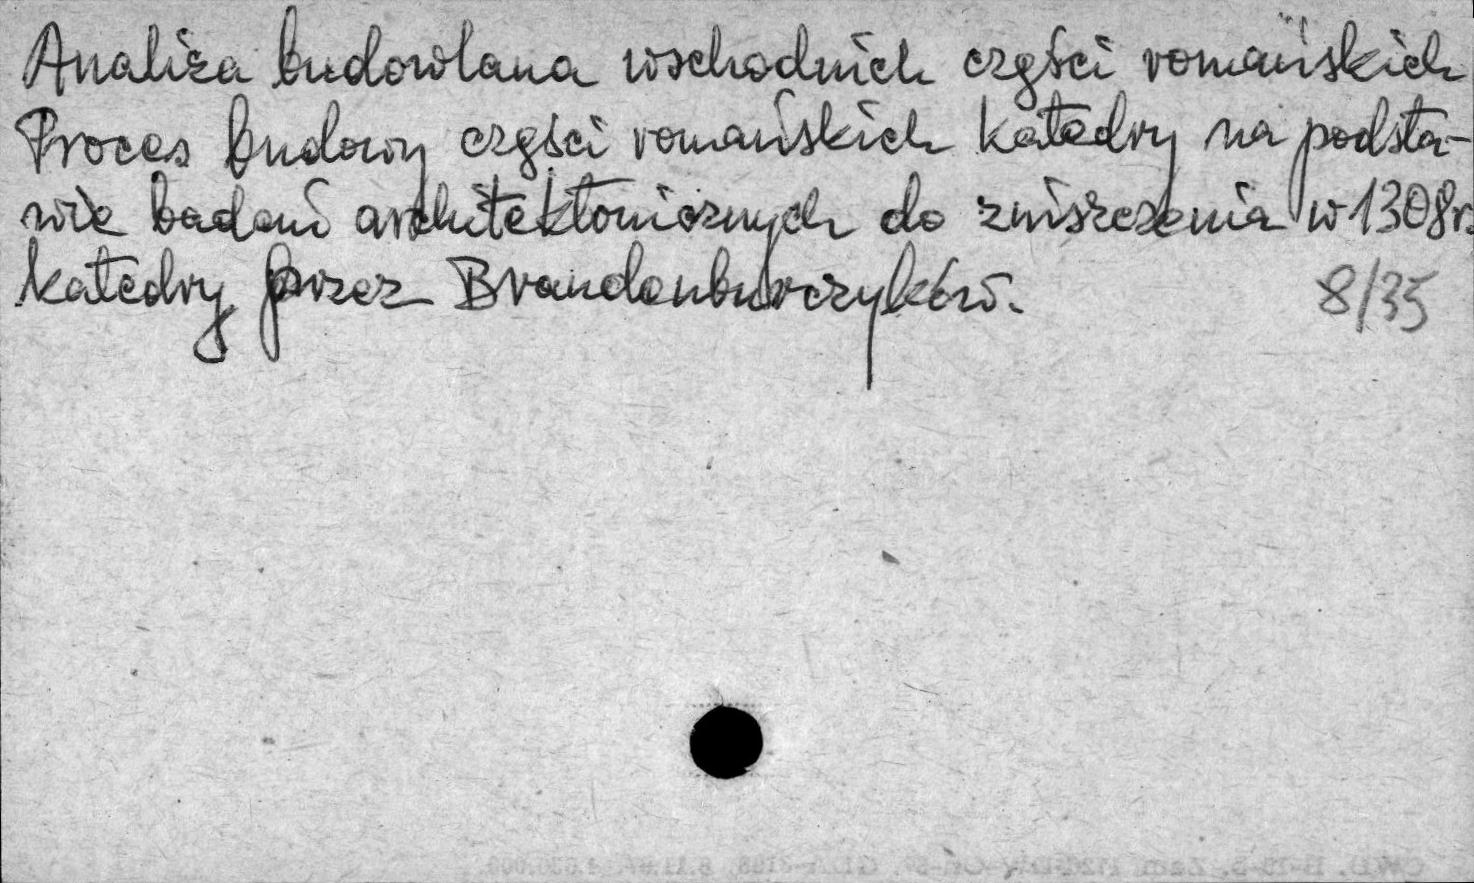 Analiza budowlana wschodnich części romańskich
Proces budowy części romańskich katedry na podsta-
wie badań architektonicznych do zniszczenia w 1308 r.
katedry przez Brandenburczyków.
8/35